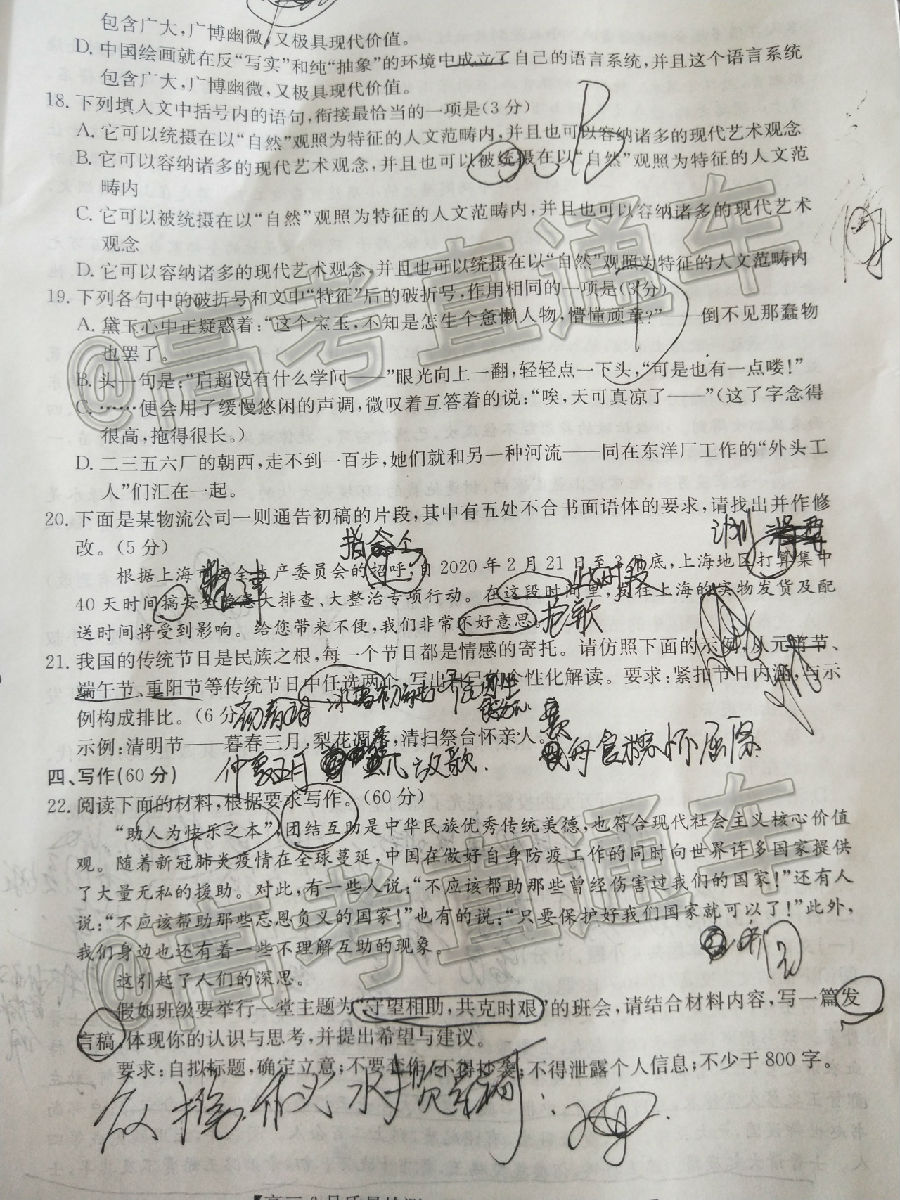 包含广大，广博幽微，又极具现代价值。
D. 中国绘画就在反“写实”和纯“抽象”的环境中成立了自己的语言系统，并且这个语言系统
包含广大，广博幽微，又极具现代价值。
18. 下列填入文中括号内的语句，衔接最恰当的一项是(3 分)
A. 它可以统摄在以“自然”观照为特征的人文范畴内，并且也可以容纳诸多的现代艺术观念
B. 它可以容纳诸多的现代艺术观念，并且也可以被统摄在以“自然”观照为特征的人文范
畴内
C. 它可以被统摄在以“自然”观照为特征的人文范畴内，并且也可以容纳诸多的现代艺术
观念
D. 它可以容纳诸多的现代艺术观念，并且也可以统摄在以“自然”观照为特征的人文范畴内
19. 下列各句中的破折号和文中“特征”后的破折号，作用相同的一项是(3分)
A. 黛玉心中正疑惑着：“这个宝玉，不知是怎生个惫懒人物，懵懂顽童？”——倒不见那蠢物
也罢了。
B. 头一句是：“启超没有什么学问——”眼光向上一翻，轻轻点一下头，“可是也有一点喽！”
C. ……便会用了缓慢悠闲的声调，微叹着互答着的说：“唉，天可真凉了——”(这了字念得
很高，拖得很长。)
D. 二三五六厂的朝西，走不到一百步，她们就和另一种河流——同在东洋厂工作的“外头工
人”们汇在一起。
20. 下面是某物流公司一则通告初稿的片段，其中有五处不合书面语体的要求，请找出并作修
改。(5 分)
指令 计划
根据上海 全 产委员会的招呼，自 2020 年 2 月 21 日至 3 月底，上海地区打算集中
此时段
40 天时间搞安 大排查、大整治专项行动。在这段时间里，我在上海的实物发货及配
送时间将受到影响。给您带来不便，我们非常不好意思 抱歉
21. 我国的传统节日是民族之根，每一个节日都是情感的寄托。请仿照下面的示例，从元宵节、
端午节、重阳节等传统节日中任选两个，写出自己的个性化解读。要求：紧扣节日内涵，与示
例构成排比。(6 分)
示例：清明节——暮春三月，梨花凋零，清扫祭台怀亲人
四、写作(60 分)
22. 阅读下面的材料，根据要求写作。(60 分)
“助人为快乐之本”，团结互助是中华民族优秀传统美德，也符合现代社会主义核心价值
观。随着新冠肺炎疫情在全球蔓延，中国在做好自身防疫工作的同时向世界许多国家提供
了大量无私的援助。对此，有一些人说：“不应该帮助那些曾经伤害过我们的国家！”还有人
说：“不应该帮助那些忘恩负义的国家！”也有的说：“只要保护好我们国家就可以了！”此外，
我们身边也还有着一些不理解互助的现象。
这引起了人们的深思。
假如班级要举行一堂主题为“守望相助，共克时艰”的班会，请结合材料内容，写一篇发
言稿，体现你的认识与思考，并提出希望与建议。
要求：自拟标题，确定立意；不要套作，不得抄袭；不得泄露个人信息；不少于 800 字。
@高考直通车
@高考直通车